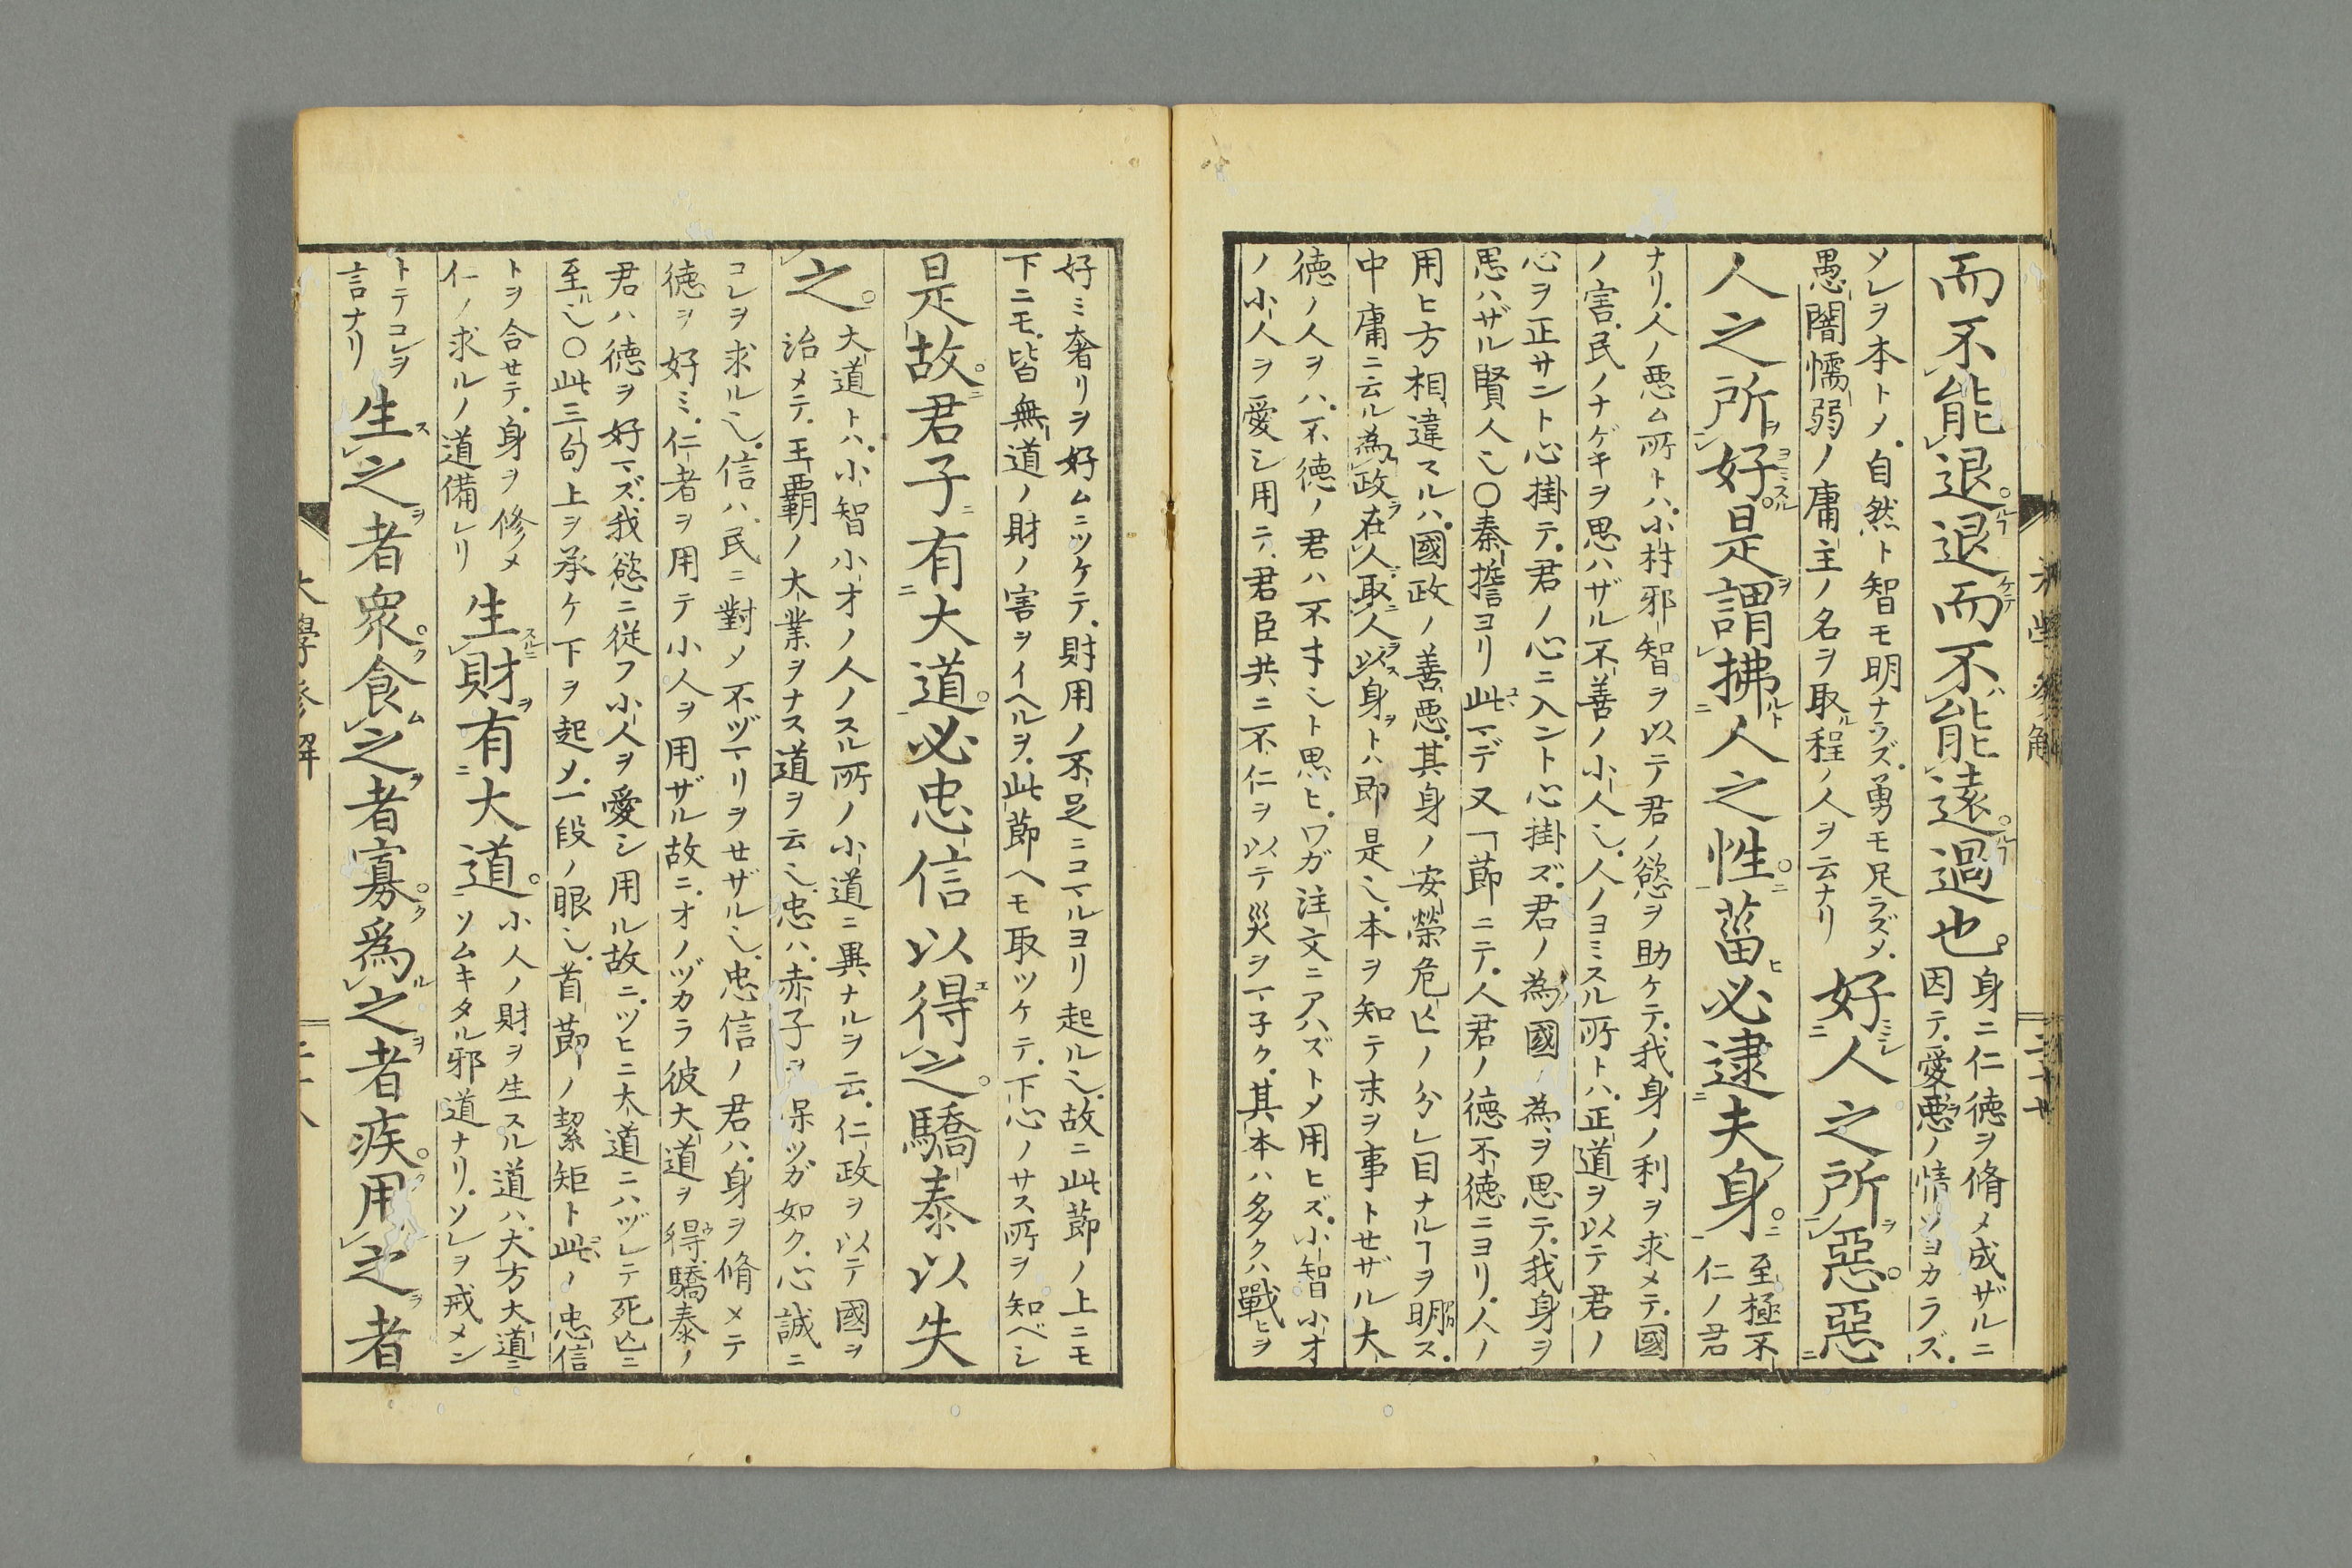 而不能退退而不能遠過也
身ニ仁徳ヲ脩メ成ザルニ
因テ愛惡ノ情ソヨカラズ
ソレヲ本トメ自然ト智モ明ナラズ勇モ足ラズメ
愚闇懦弱ノ庸主ノ名ヲ取ル程ノ人ヲ云ナリ
好人之所惡惡
人之所好是謂拂人之性菑必逮夫身
至極不
仁ノ君
ナリ人ノ悪ム所トハ小材邪智ヲ以テ君ノ慾ヲ助ケテ我身ノ利ヲ求メテ國
ノ害民ノナゲキヲ思ハザル不善ノ小人〆人ノヨミスル所トハ正道ヲ以テ君ノ
心ヲ正サント心掛テ君ノ心ニ入ント心掛ズ君ノ為國ノ為ヲ思テ我身ヲ
思ハザル賢人〆○秦誓ヨリ此マデ又一節ニテ人君ノ徳不徳ニヨリ人ノ
用ヒ方相違スルハ國政ノ善悪其身ノ安榮危亡ノ分レ目ナルヿヲ明ス
中庸ニ云ル為政在人取人以身トハ即是〆本ヲ知テ末ヲ事トセザル大
徳ノ人ヲハ不徳ノ君ハ不才〆ト思ヒワガ注文ニアハズトメ用ヒズ小智小才
ノ小人ヲ愛シ用テ君臣共ニ不仁ヲ以テ災ヲマ子ク其本ハ多クハ戰ヒヲ
好ミ奢リヲ好ムニツケテ財用ノ不足ニコマルヨリ起ル〆故ニ此節ノ上ニモ
下ニモ皆無道ノ財ノ害ヲイヘルヲ此節ヘモ取ツケテ下心ノサス所ヲ知ベシ
是故君子有大道必忠信以得之驕泰以失
之
大道トハ小智小才ノ人ノスル所ノ小道ニ異ナルヲ云仁政ヲ以テ國ヲ
治メテ王覇ノ大業ヲナス道ヲ云〆忠ハ赤子ヲ保ツガ如ク心誠ニ
コレヲ求ル〆信ハ民ニ對メ不ヅマリヲせザル〆忠信ノ君ハ身ヲ脩メテ
徳ヲ好ミ仁者ヲ用テ小人ヲ用ザル故ニオノヅカラ彼大道ヲ得驕泰ノ
君ハ徳ヲ好マズ我慾ニ従フ小人ヲ愛シ用ル故ニツヒニ大道ニハヅレテ死亡ニ
至ル〆○此三句上ヲ承ケ下ヲ起メ一段ノ眼〆首節ノ絜矩ト此ノ忠信
トヲ合せテ身ヲ修メ
仁ノ求ルノ道備レリ
生財有大道
小人ノ財ヲ生スル道ハ大方大道ニ
ソムキタル邪道ナリソレヲ戒メン
トテコレヲ
言ナリ
生之者衆食之者寡爲之者疾用之者